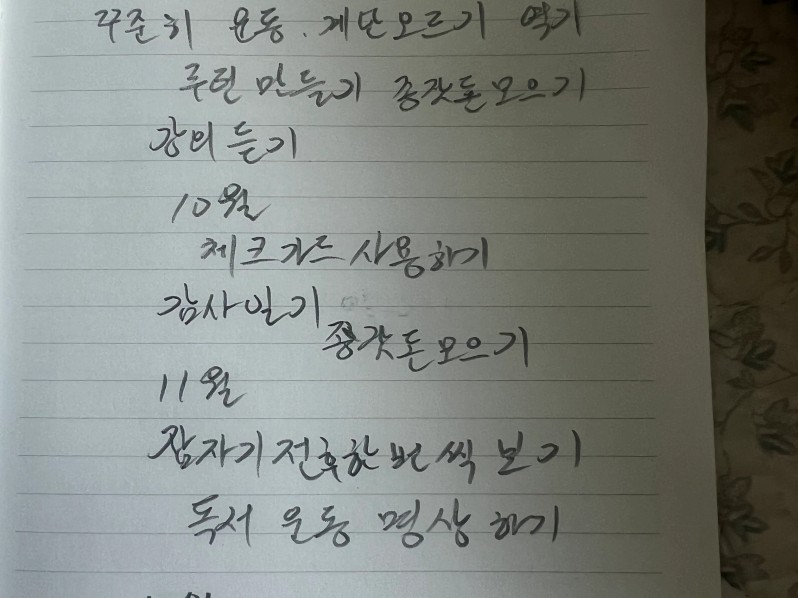 꾸준히 운동. 계단오르기 역기
루틴 만들기 종잣돈모으기
강의 듣기
10월
체크카드 사용하기
감사일기
종잣돈모으기
11월
잠자기전후한번씩 보기
독서 운동 명상하기